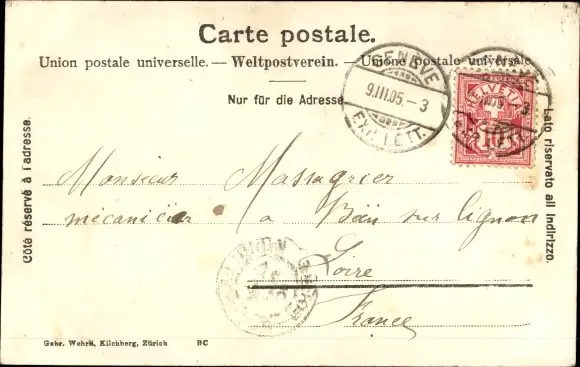 Carte postale.
Union postale universelle. — Weltpostverein. — Unione postale universale.
Nur für die Adresse.
Côté réservé à l'adresse.
Lato riservato all'indirizzo.
GENÈVE
9.III.05. - 3
EXP. LETT.
HELVETIA
10
Monsieur Massagrier
mécanicien a Bäis sur lignon
Loire
France
Gebr. Wehrli, Kilchberg, Zürich BC